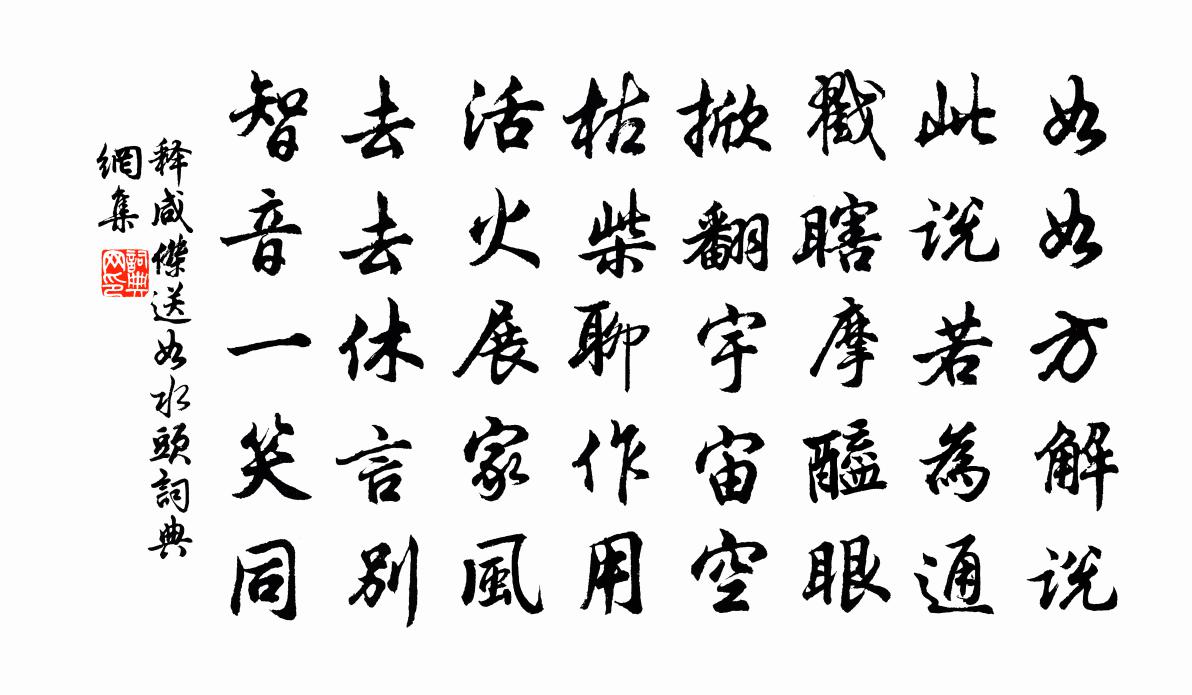 如如方解説
此説若為通
戳瞎摩醯眼
掀翻宇宙空
枯柴聊作用
活火展家風
去去休言別
智音一笑同
释咸傑送如水頭詞典
網集
詞典
网印